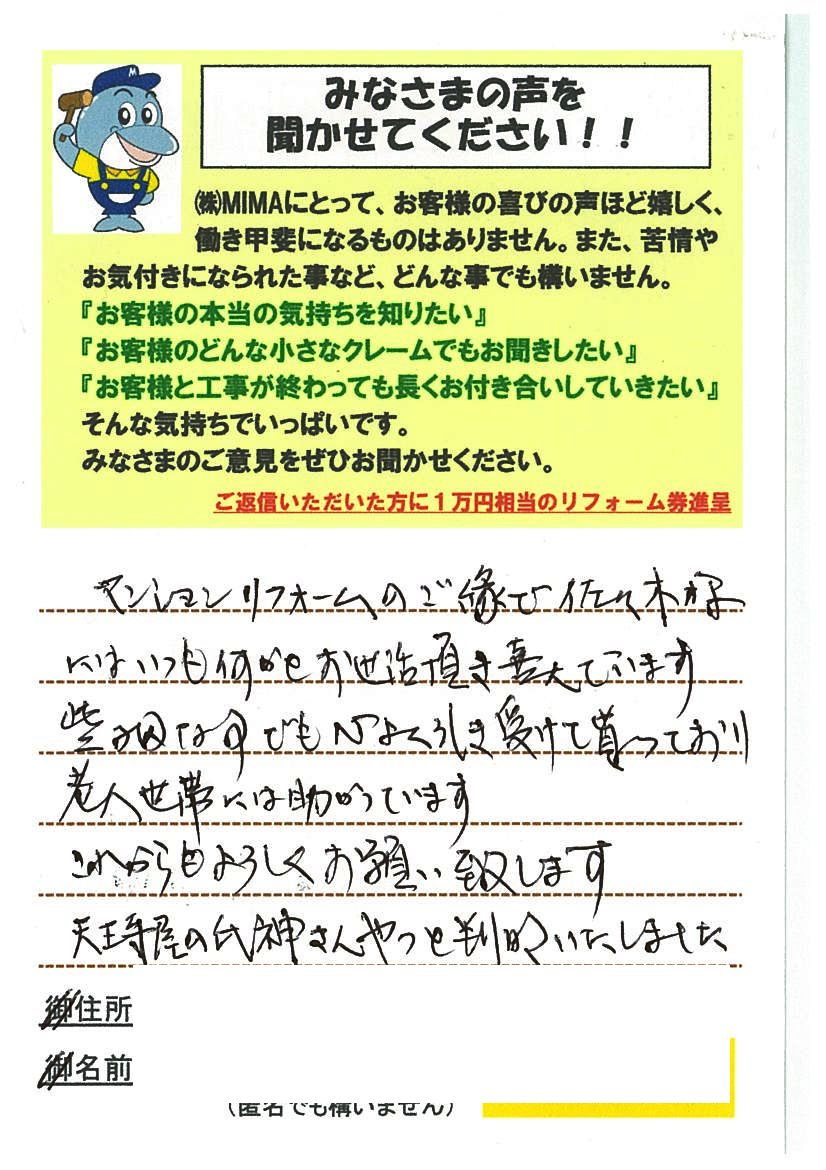 M
みなさまの声を
聞かせてください！！
㈱MIMAにとって、お客様の喜びの声ほど嬉しく、
働き甲斐になるものはありません。また、苦情や
お気付きになられた事など、どんな事でも構いません。
『お客様の本当の気持ちを知りたい』
『お客様のどんな小さなクレームでもお聞きしたい』
『お客様と工事が終わっても長くお付き合いしていきたい』
そんな気持ちでいっぱいです。
みなさまのご意見をぜひお聞かせください。
ご返信いただいた方に１万円相当のリフォーム券進呈
マンションリフォームのご縁で佐々木様
にはいつも何かとお世話頂き喜んでいます
でも心よく引き受けて貰っており
老人世帯には助かっています
これからもよろしくお願い致します
天王寺屋の氏神さんやっと判明いたしました
御住所
御名前
（匿名でも構いません）